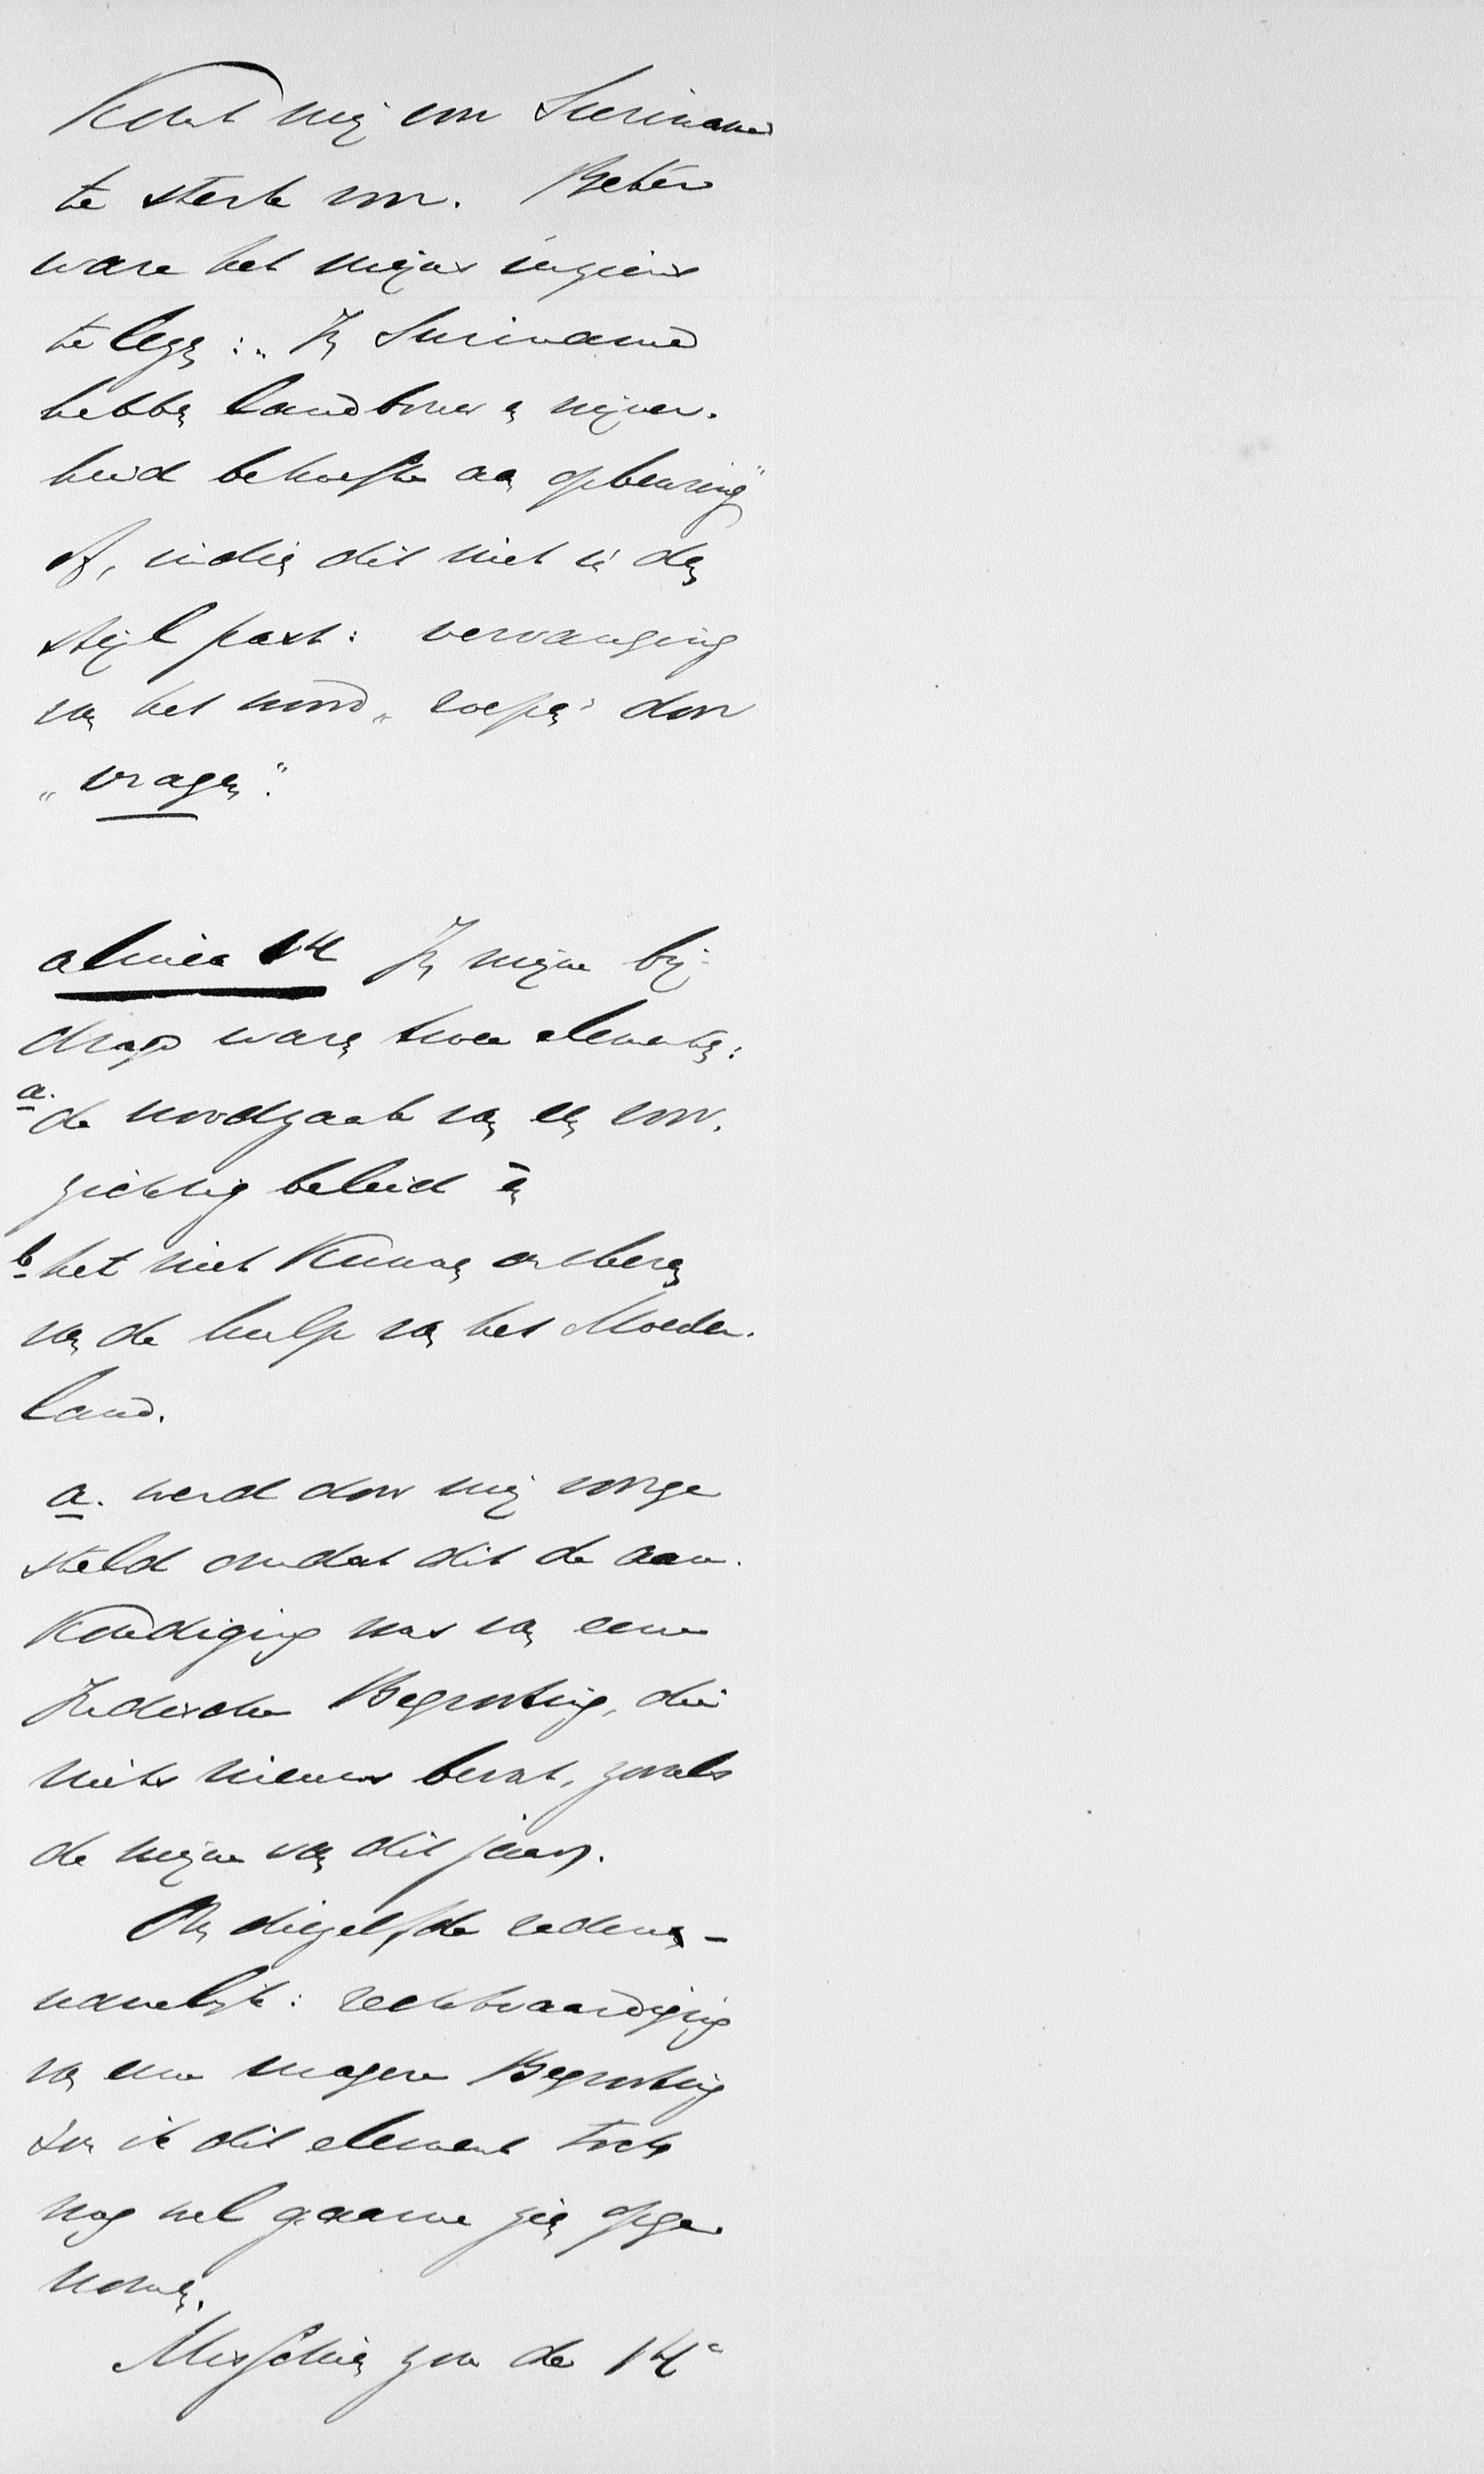 Komt mij voor Suriname
te sterk voor. Beter
ware het mijns inziens
te lezen: „In Suriname
hebben landbouw en nijver-
heid behoefte aan opbeuring"
of, indien dit niet in den
stijl past: vervanging
van het woord „roepen" door
„vragen".
alinea 14 In mijne bij-
drage waren twee elementen:
a. de noodzaak van een voor-
zichtig beleid en
b. het niet kunnen ontberen
van de hulp van het Moeder-
land.
a. werd door mij voorge
steld omdat dit de aan-
kondiging was van eene
Indische Begrooting, die
niets nieuws bevat, zooals
de mijne van dit jaar.
Om diezelfde reden -
namelijk: rechtvaardiging
van eene magere Begrooting
zou ik dit element toch
nog wel gaarne zien opge
nomen.
Misschien zou de 14e